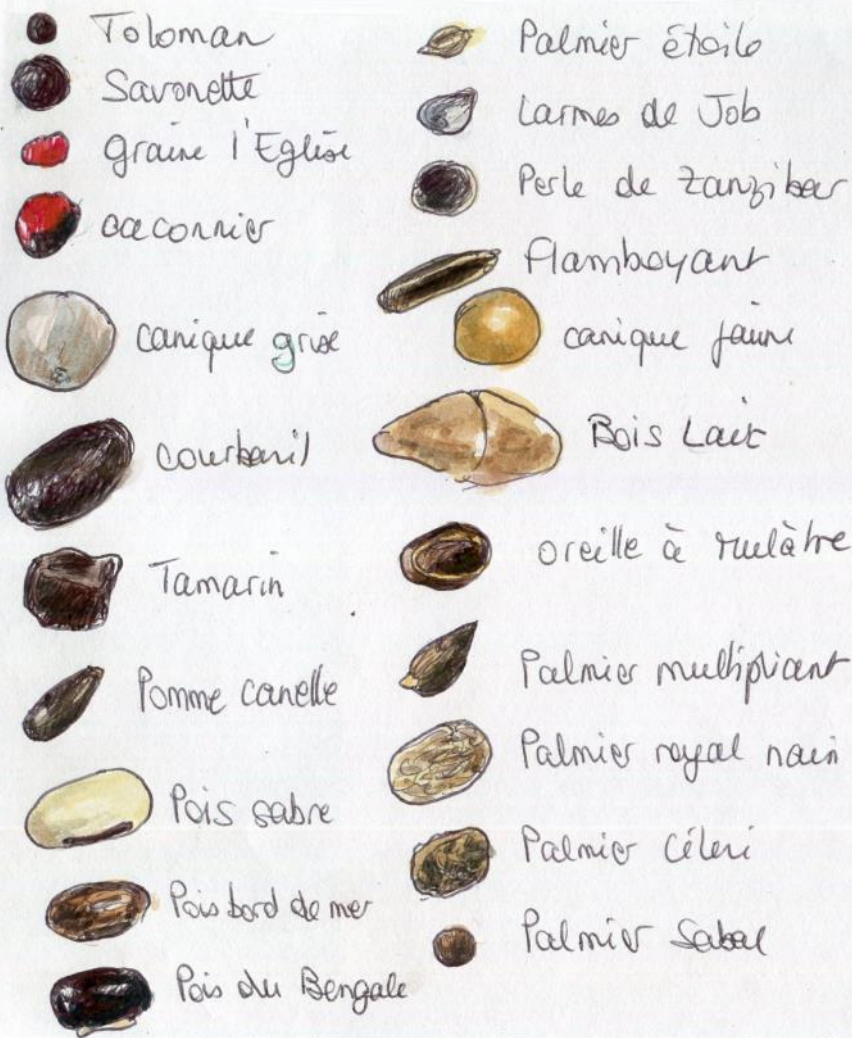 Toloman
Savonette
graine l'Eglise
caconnier
canique grise
courbaril
Tamarin
Pomme canelle
Pois sabre
Pois bord de mer
Pois du Bengale
Palmier étoile
Larmes de Job
Perle de Zanzibar
Flamboyant
canique jaune
Bois Lait
oreille à mulâtre
Palmier multipliant
Palmier royal nain
Palmier Céleri
Palmier Sabal